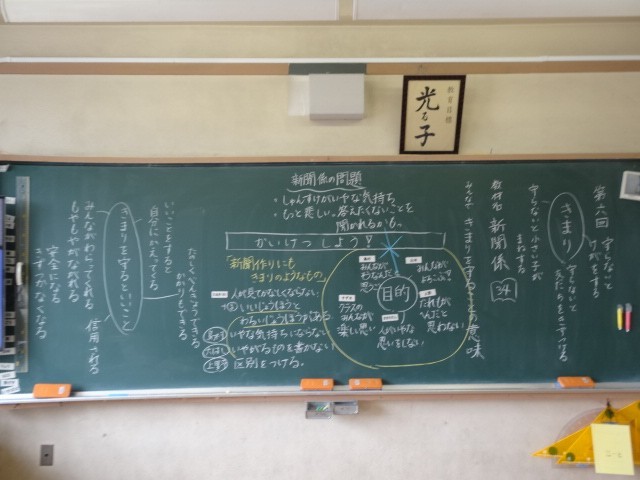 教育目標
光る子
第六回
きまり
守らないと
けがをする
守らないと小さい子が
まねする
教材名 新聞係
34
みんなで きまりを守ることの意味
新聞係の問題
・しゅんすけがいやな気持ち。
・もっと悲しい。答えたくないことを
聞かれるかも。
かいけつしよう!
「新聞作りにも
きまりのようなもの」
人が見てかなしくならない
いいじょうほうと
わるいじょうほうがある。
いやな気持ちにならない
いやがるものを書かない
区別をつける。
目的
みんなが
そうなんだと
思う
みんなが
クラスの
みんなが
楽しい思い
だれもが
いやだと
思わない
人がいやな
思いをしない
たのしくべんきょうできる
かかりもできる
いいことをすると
自分にかえってくる
きまりを守るといいこと
みんながわらってくれる
もやもやがなくなる
信用される
安全になる
きずつかなくなる